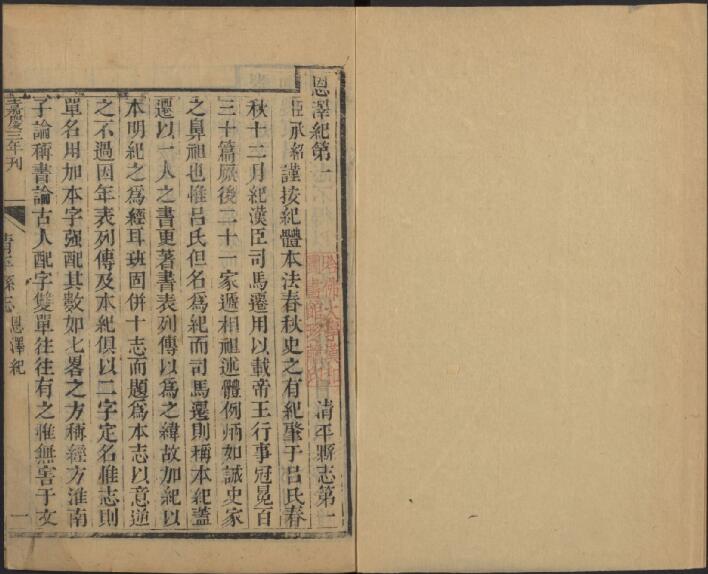 恩澤紀第一
清平縣志第二
臣承紹謹按紀體本法春秋史之有紀肇于呂氏春
秋十二月紀漢臣司馬遷用以載帝王行事冠冕百
三十篇厥後二十一家遞相祖述體例炳如誠史家
之鼻祖也惟呂氏但名爲紀而司馬遷則稱本紀蓋
遷以一人之書更著書表列傳以爲之緯故加紀以
本明紀之爲經耳班固併十志而題爲本志以意逆
之不過因年表列傳及本紀俱以二字定名惟志則
單名用加本字强配其數如七畧之方稱經方淮南
子論稱書論古人配字雙單往往有之雖無害于文
嘉慶三年刊
清平縣志
恩澤紀
一